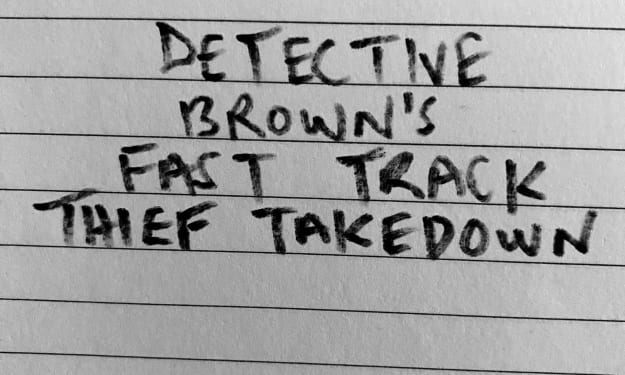 DETECTIVE
BROWN'S
FAST TRACK
THIEF TAKEDOWN